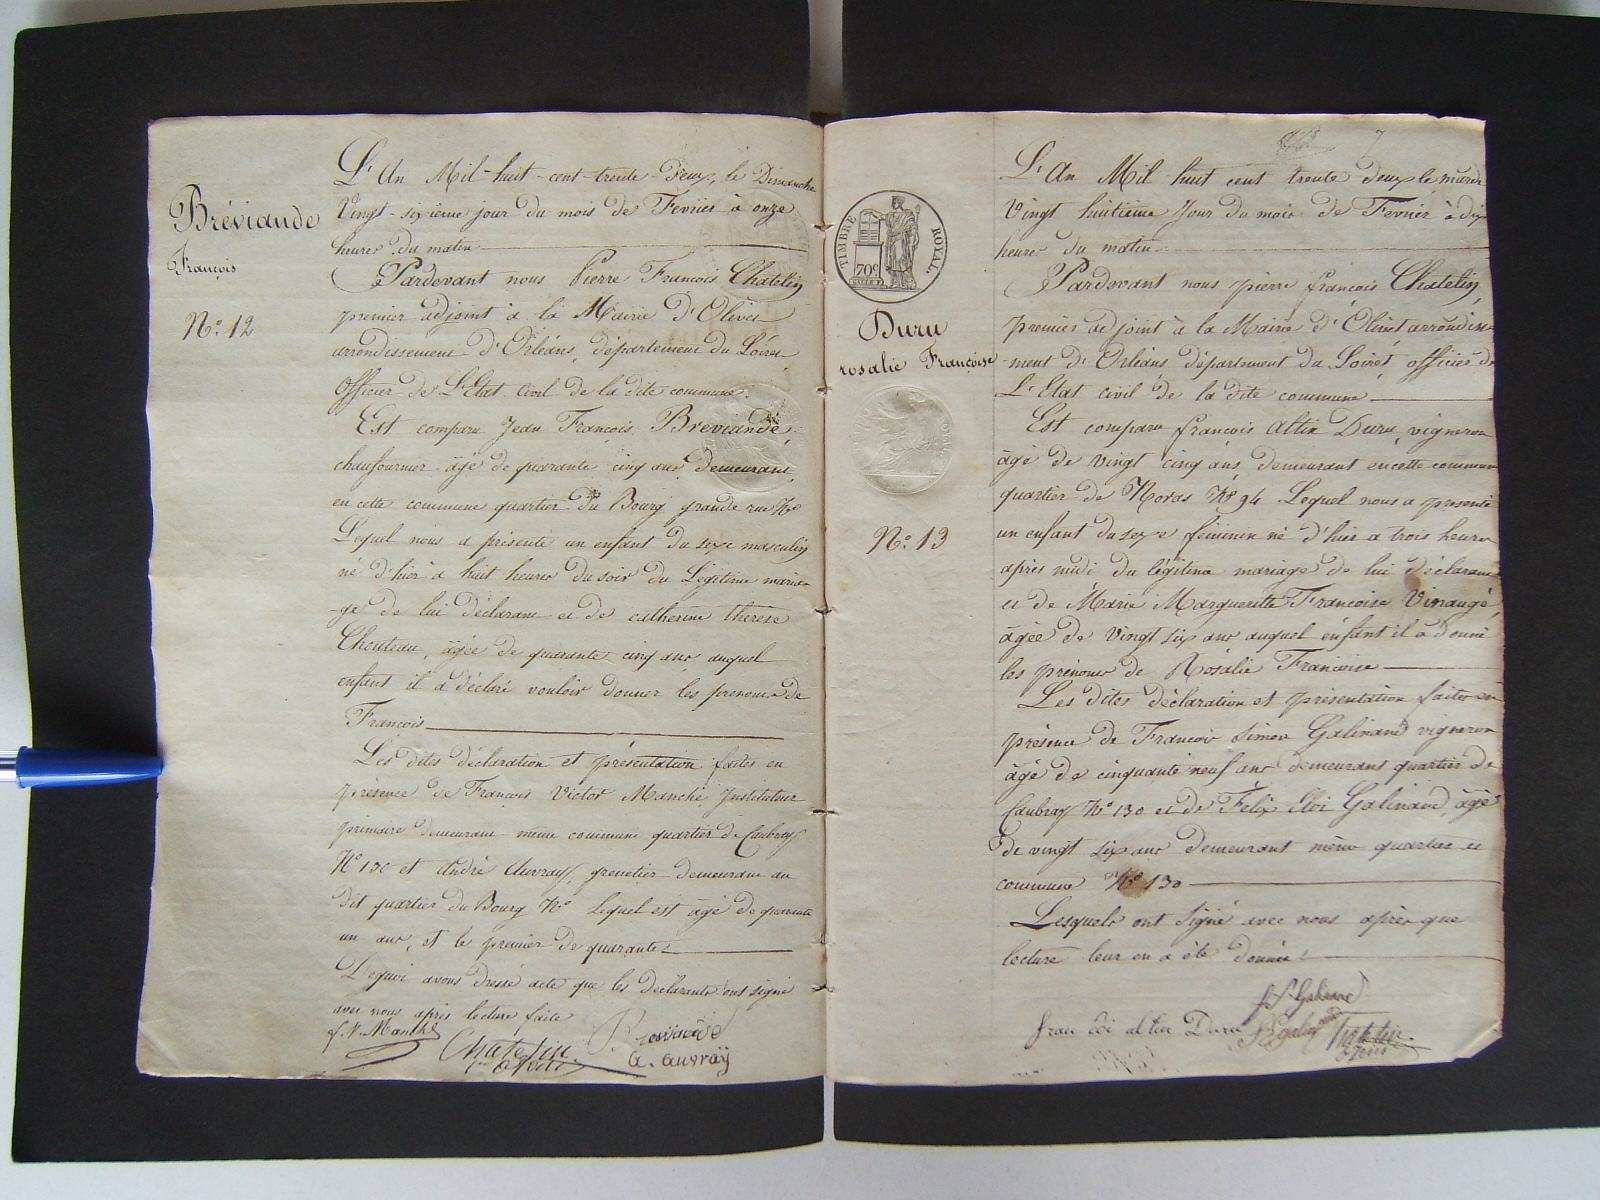 Bréviande
François
N.o 12
L'An Mil-huit-cent-trente-Deux, le Dimanche
Vingt-sixième jour du mois de Fevrier à onze
heures du matin
Pardevant nous Pierre François Chatelin
premier adjoint à la Mairie d'Olivet
arrondissement d'Orléans, département du Loiret
Officier de L'Etat Civil de la dite commune.
Est comparu Jean François Breviande,
chaufournier âgé de quarante cinq ans demeurant
en cette commune quartier du Bourg grande rue No
Lequel nous a présenté un enfant du sexe masculin
né d'hier à huit heures du soir du Légitime maria-
-ge de lui déclarant et de catherine therese
Chouteau, âgée de quarante cinq ans auquel
enfant il a déclaré vouloir donner les prenoms de
François
Les dites déclaration et présentation faites en
présence de François Victor Manché Instituteur
primaire demeurant même commune quartier de Caubray
No 130 et André Auvray, grenetier demeurant au
dit quartier du Bourg No Lequel est âgé de quarante
un ans, et le premier de quarante
Dequoi avons dressé acte que les déclarants ont signé
avec nous après lecture faite
f. V. Manché
Chatelin
adjoint
Breviande
a. auvraÿ
7
TIMBRE ROYAL
70c
Duru
rosalie Françoise
N.o 13
L'An Mil huit cent trente deux le mardi
Vingt huitième Jour du mois de Fevrier à dix
heures du matin
Pardevant nous pierre françois Chatelin,
premier adjoint à la Mairie d'Olivet arrondisse-
-ment d'Orléans département du Loiret, officier de
L'Etat civil de la dite commune
Est comparu françois altin Duru, vigneron
âgé de vingt cinq ans, demeurant en cette commune
quartier de Noras No 94 Lequel nous a presenté
un enfant du sexe féminin né d'hier a trois heures
après midi du légitime mariage de lui déclarant
et de Marie Marguerite Francoise Vinaugé,
âgée de vingt six ans auquel enfant il a donné
les prénoms de Rosalie Francoise
Les dites déclaration et présentation faites en
présence de Francois Simon Galinand vigneron
âgé de cinquante neuf ans demeurant quartier de
Caubray No 130 et de Félix Eloi Galinand, âgé
de vingt six ans demeurant même quartier et
commune No 130
Lesquels ont signé avec nous après que
lecture leur en a été donnée
f S Galinand
fran coi altin Duru
Chatelin
adjoint